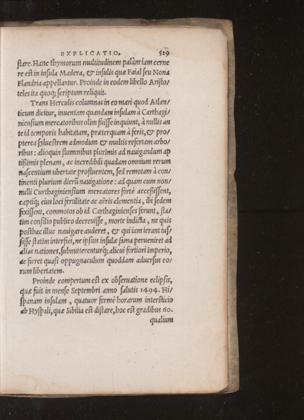 EXPLICATIO. 529
stare. Hanc thymorum multitudinem palàm iam cerne
re est in insula Madera, & insulis quæ Faial seu Noua
Flandria appellantur. Proinde in eodem libello Aristo
teles ita quoq; scriptum reliquit.
Trans Herculis columnas in eo mari quod Atlan
ticum dicitur, inuentam quandam insulam à Carthagi
niensium mercatoribus olim fuisse inquiunt, à nullis an
te id temporis habitatam, præterquam à feris, & pro
pterea syluestrem admodum & multis refertam arbo
ribus: alioquin fluminibus plurimis ad nauigandum ap
tissimis plenam, ac incredibili quadam omnium rerum
nascentium vbertate profluentem, sed remotam à con
tinenti plurium dierū nauigatione: ad quam cum non
nulli Carthaginiensium mercatores fortè accessissent,
captiq; eius loci fertilitate ac aëris clementia, ibi sedem
fixissent, commotos ob id Carthaginienses ferunt, sta
tim consilio publico decreuisse, morte indicta, ne quis
posthac illuc nauigare auderet, & qui iam ierant ius
sisse statim interfici, ne ipsius insulæ fama perueniret ad
alias nationes, submitterenturq; alicui fortiori imperio,
ac fieret quasi oppugnaculum quoddam aduersus eo
rum libertatem.
Proinde compertum est ex obseruatione eclipsis,
quæ fuit in mense Septembri anno salutis 1494. Hi
spanam insulam, quatuor fermè horarum interstitio
ab Hyspali, quæ Sibilia est distare, hoc est gradibus 60.
qualium